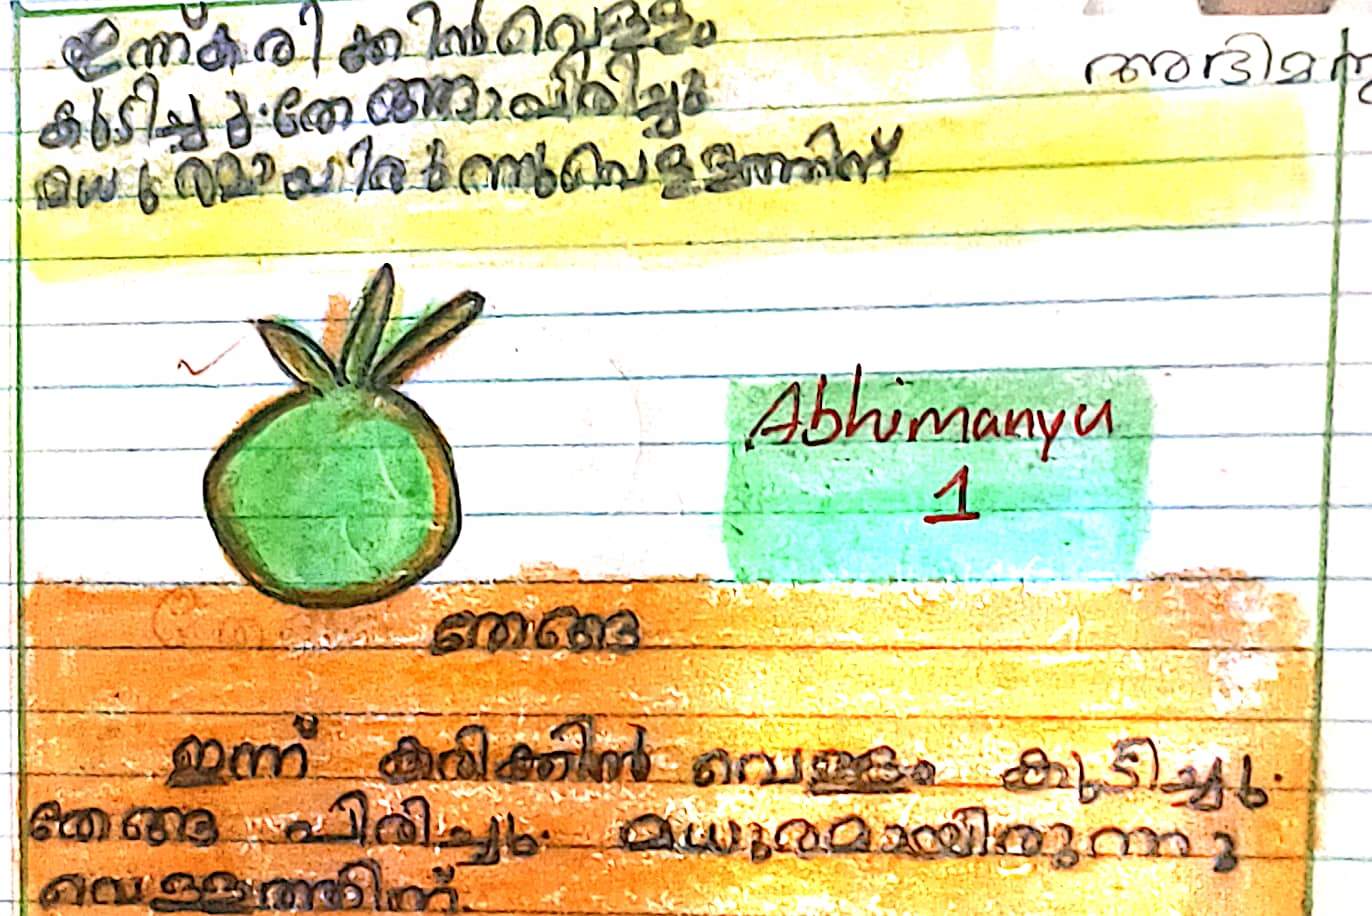 ഇന്ന് കരിക്കിൻ വെള്ളം
കുടിച്ചു. തേങ്ങാ പിരിച്ചു
മധുരമായിരുന്നു വെള്ളത്തിന്
Abhimanyu
1
തേങ്ങ
ഇന്ന് കരിക്കിൻ വെള്ളം കുടിച്ചു.
തേങ്ങ പിരിച്ചു. മധുരമായിരുന്നു
വെള്ളത്തിന്.